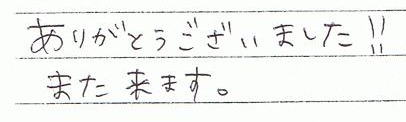 ありがとうございました!!
また来ます。